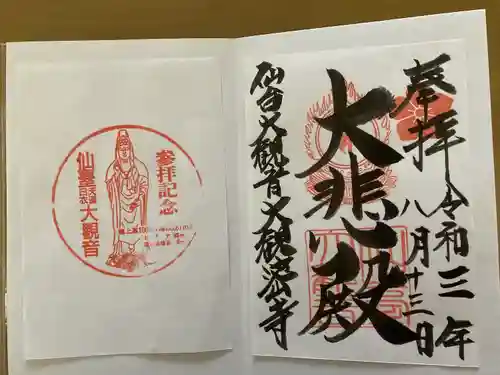 奉拝
令和三年
八月十三日
大悲殿
仙台大観音大観密寺
参拝記念
仙臺
天道
白衣
大観音